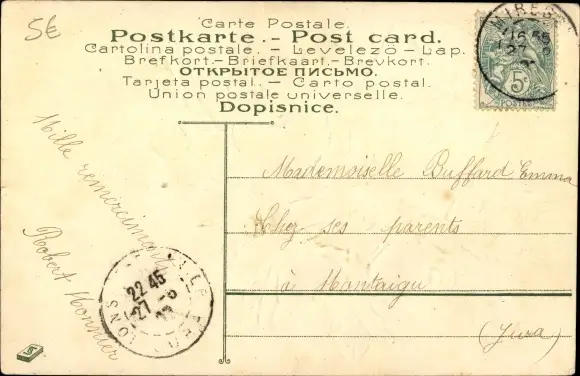 5€
Carte Postale.
Postkarte. - Post card.
Cartolina postale. - Levelező - Lap.
Brefkort. - Briefkaart. - Brevkort.
ОТКРЫТОЕ ПИСЬМО.
Tarjeta postal. - Carto postal.
Union postale universelle.
Dopisnice.
5c
POSTES
16 55
27
Mille remerciments
Robert Monnier
Mademoiselle Buffard Emma
Chez ses parents
à Montaigu
(Jura)
22 45
27 - 5
LONS